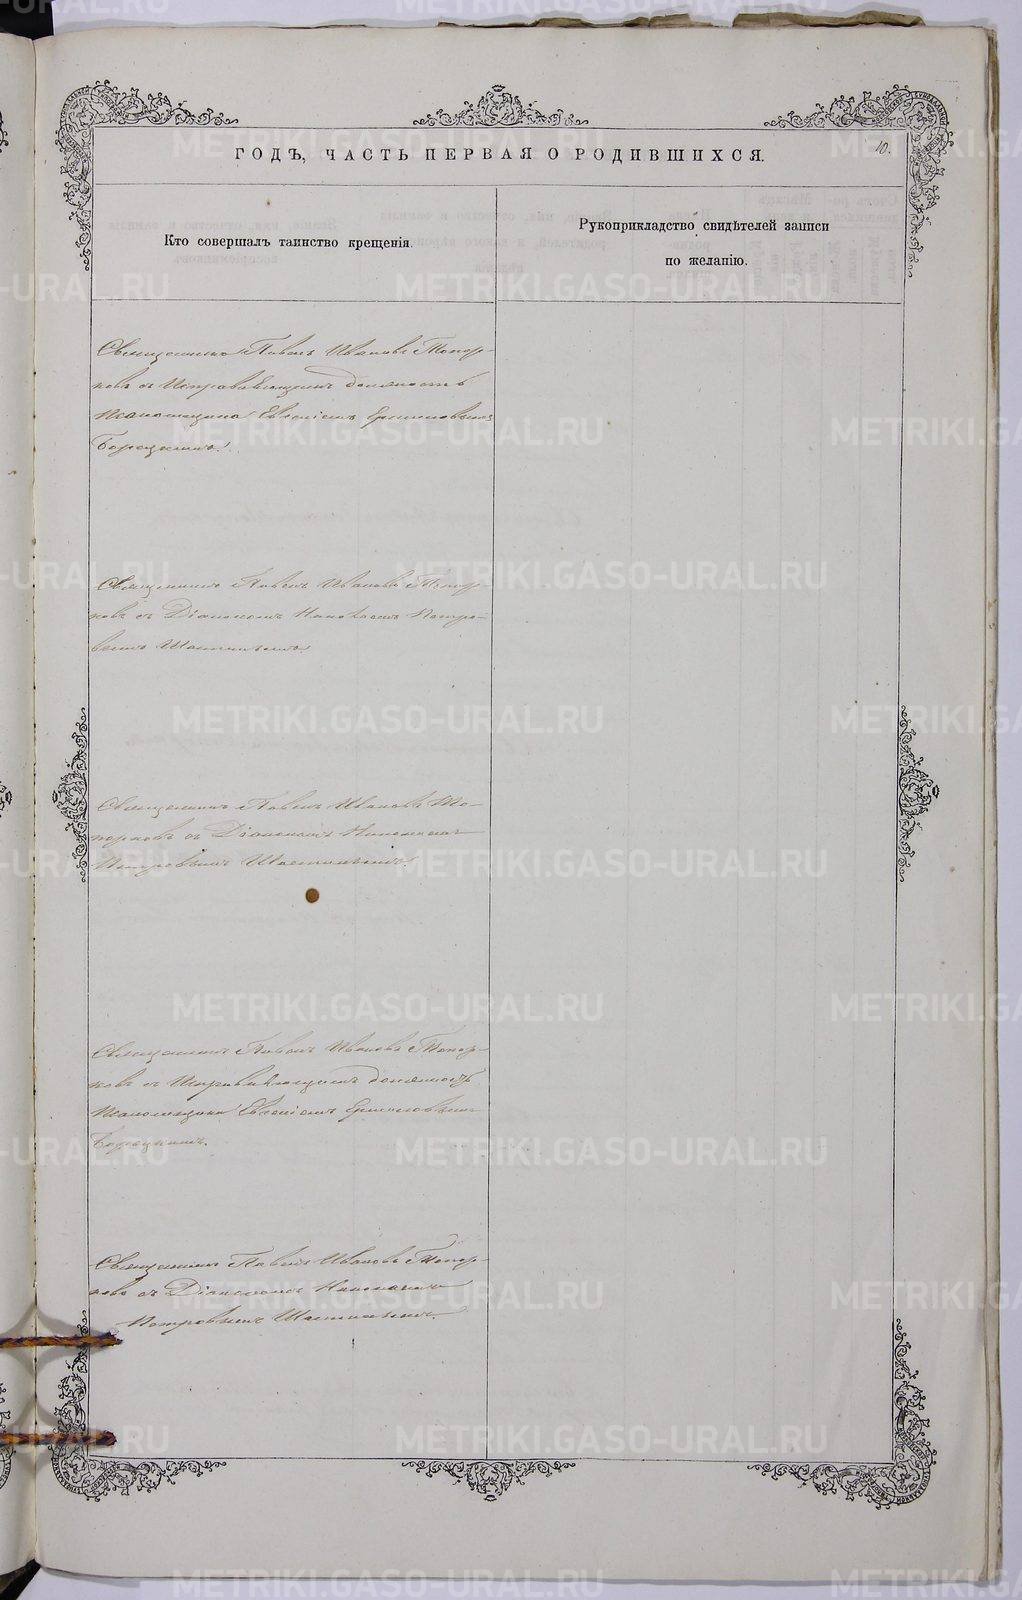 ГОДЪ, ЧАСТЬ ПЕРВАЯ О РОДИВШИХСЯ.
10.
Кто совершалъ таинство крещенія.
Рукоприкладство свидѣтелей записи
по желанію.
Священникъ Павелъ Ивановъ Топор-
ковъ съ Исправляющимъ должность
Псаломщика Евгеніемъ
Борецкимъ.
Священникъ Павелъ Ивановъ Топор-
ковъ съ Діакономъ Николаемъ Петро-
вымъ
Священникъ Павелъ Ивановъ То-
порковъ съ Діакономъ Николаемъ
Петровымъ
Священникъ Павелъ Ивановъ Топор-
ковъ съ Исправляющимъ должность
Псаломщика Евгеніемъ
Борецкимъ.
Священникъ Павелъ Ивановъ Топор-
ковъ съ Діакономъ Николаемъ
Петровымъ
METRIKI.GASO-URAL.RU